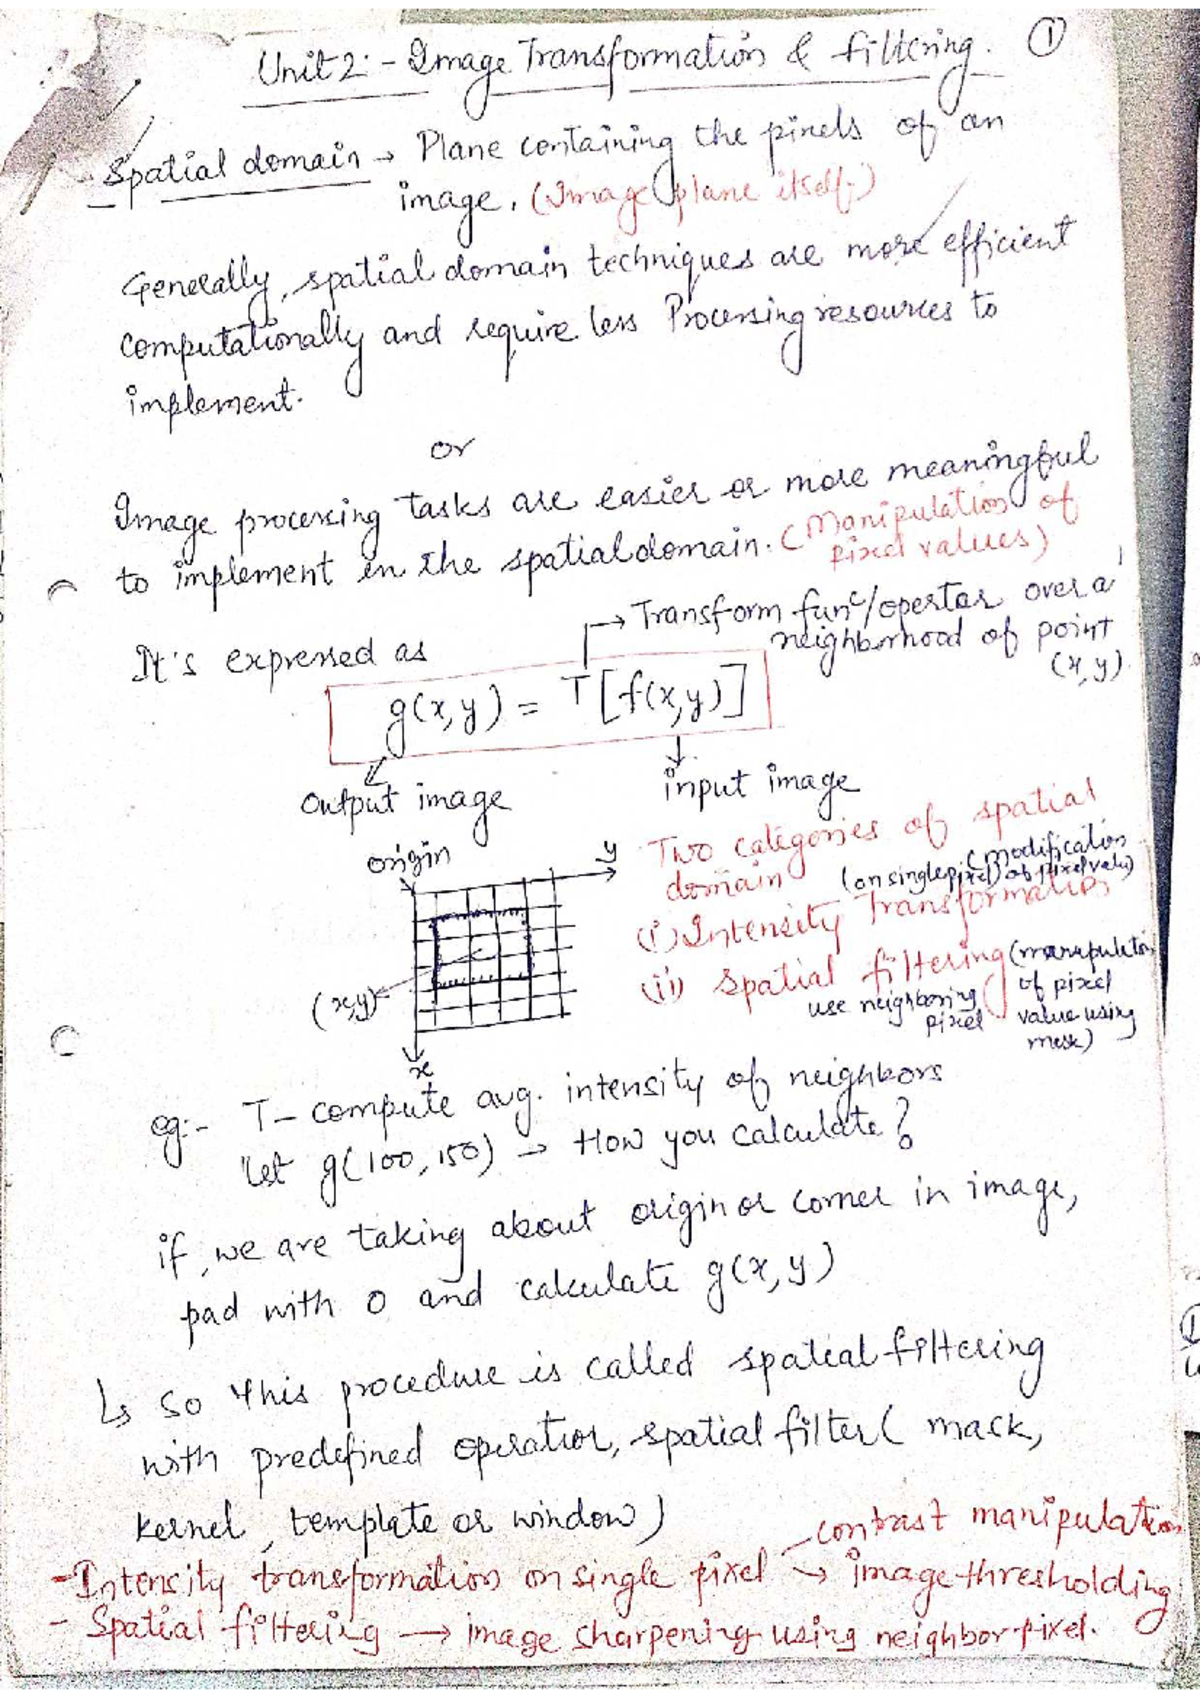 Unit 2 :- Image Transformation & filtering. ①
Spatial domain → Plane containing the pixels of an
image. (Image plane itself.)
Generally, spatial domain techniques are more efficient
computationally and require less Processing resources to
implement.
or
Image processing tasks are easier or more meaningful
to implement in the spatial domain. (Manipulation of
pixel values)
→ Transform funᶜ/opertar over a
neighborhood of point
(x, y).
It's expressed as
g(x,y) = T[f(x,y)]
Output image
input image
origin
y
(x,y)
x
Two categories of spatial
domain
(on single pixel) (modification
of pixel value)
(i) Intensity Transformation
(ii) Spatial filtering (manipulation
of pixel
value using
mask)
use neighboring
pixel
eg:- T- compute avg. intensity of neighbors
let g(100,150) → How you calculate?
if, we are taking about origin or corner in image,
pad with 0 and calculate g(x,y)
↳ So this procedure is called spatial filtering
with predefined operation, spatial filter ( mask,
kernel, template or window)
contrast manipulation
- Intensity transformation on single pixel → image thresholding
- Spatial filtering → image sharpening using neighbor pixel.